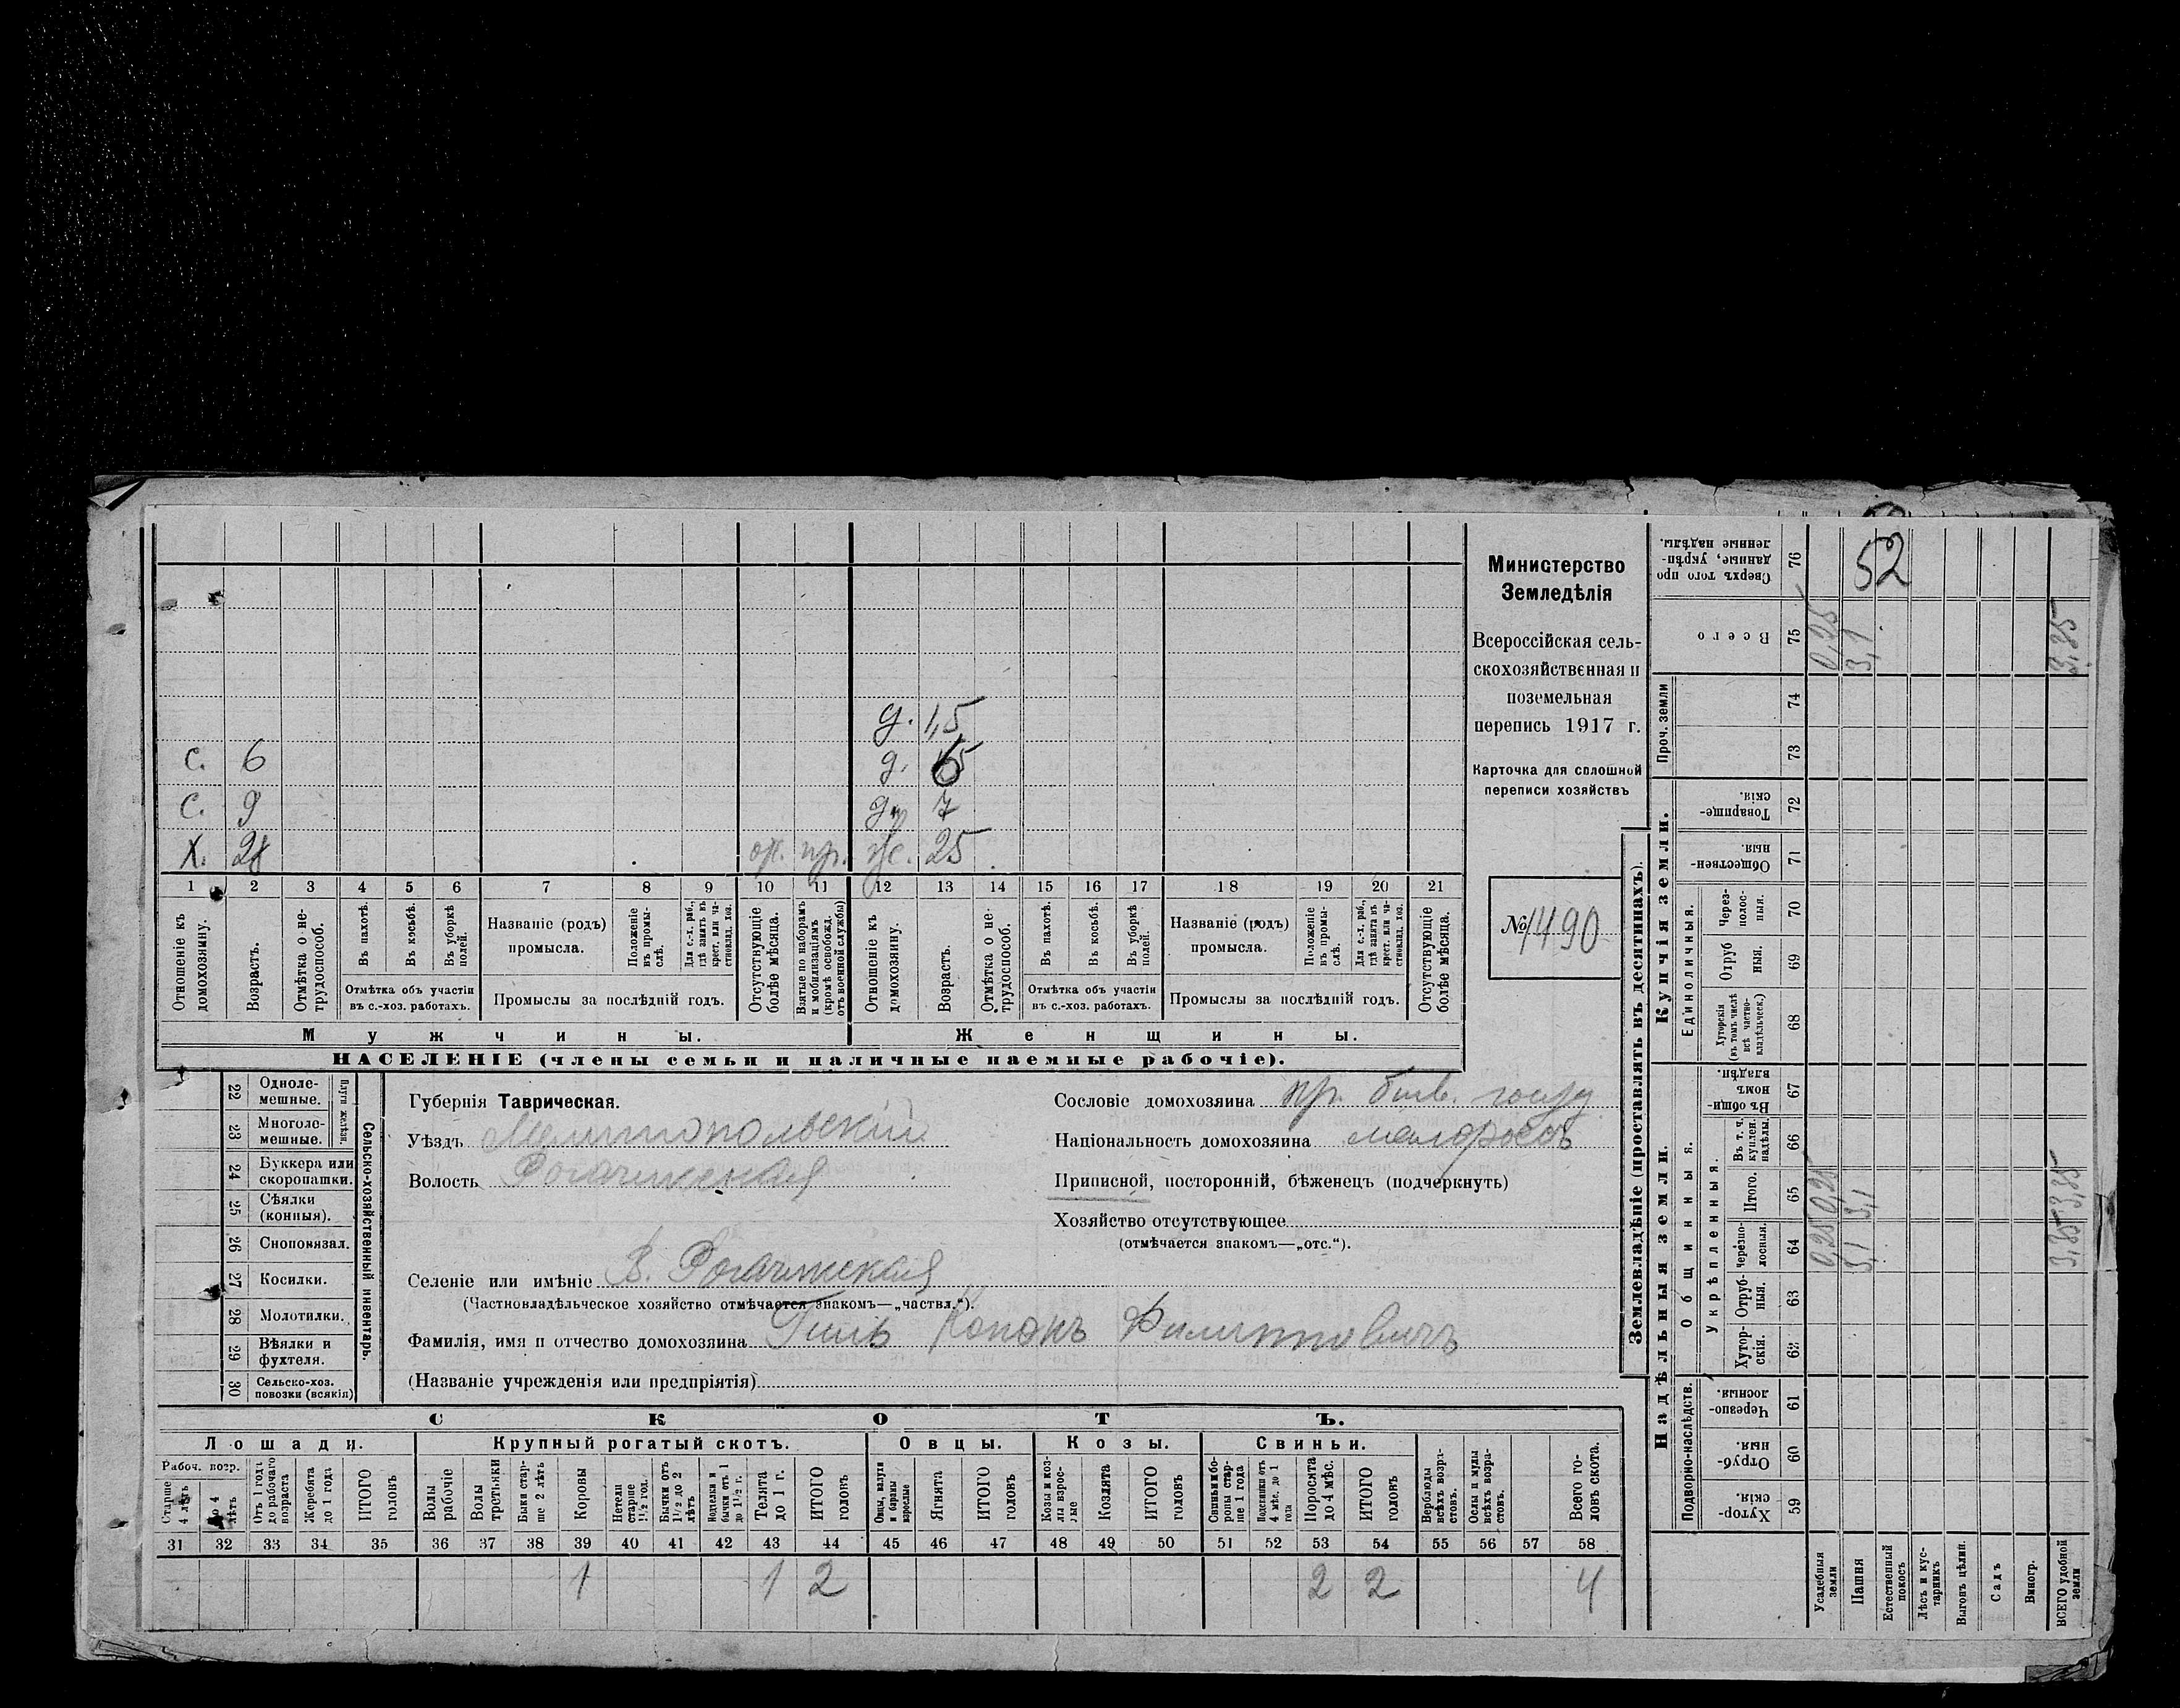 52
Министерство
Земледѣлія
Всероссійская сель-
скохозяйственная и
поземельная
перепись 1917 г.
Карточка для сплошной
переписи хозяйствъ
№ 1490
д. 1,5
С. 6 д.
С. 9 д. 7
Х. 28 пр. ж. 25
1 2 3 4 5 6 7 8 9 10 11 12 13 14 15 16 17 18 19 20 21
Отношеніе къ домохозяину.
Возрастъ.
Отмѣтка о не-трудоспособ.
Въ пахотѣ.
Въ косьбѣ.
Въ уборкѣ полей.
Отмѣтка объ участіи
въ с.-хоз. работахъ.
Названіе (родъ)
промысла.
Положеніе въ промы-слѣ.
Для с.-х. раб., гдѣ занятъ въ крест. или ча-стновлад. хоз.
Промыслы за послѣдній годъ.
Отсутствующіе болѣе мѣсяца.
Взятые по наборамъ и мобилизаціямъ (кромѣ освобожд. отъ военной службы)
Отношеніе къ домохозяину.
Возрастъ.
Отмѣтка о не-трудоспособ.
Въ пахотѣ.
Въ косьбѣ.
Въ уборкѣ полей.
Отмѣтка объ участіи
въ с.-хоз. работахъ.
Названіе (родъ)
промысла.
Положеніе въ промы-слѣ.
Для с.-х. раб., гдѣ занята въ крест. или ча-стновлад. хоз.
Промыслы за послѣдній годъ.
Отсутствующіе болѣе мѣсяца.
Мужчины. Женщины.
НАСЕЛЕНІЕ (члены семьи и наличные наемные рабочіе).
Сельско-хозяйственный инвентарь.
Плуги желѣзн.
22 Одноле-мешные.
23 Многоле-мешные.
24 Буккера или скоропашки.
25 Сѣялки (конныя).
26 Сноповязал.
27 Косилки.
28 Молотилки.
29 Вѣялки и фухтеля.
30 Сельско-хоз. повозки (всякія)
Губернія Таврическая.
Уѣздъ Мелитопольскій
Волость Рогачикская
Селеніе или имѣніе В. Рогачикская
(Частновладѣльческое хозяйство отмѣчается знакомъ—„частвл.“).
Фамилія, имя и отчество домохозяина Гиль Конанъ Филипповичъ
(Названіе учрежденія или предпріятія)
Сословіе домохозяина кр. бывш. госуд
Національность домохозяина малороссъ
Приписной, посторонній, бѣженецъ (подчеркнуть)
Хозяйство отсутствующее
(отмѣчается знакомъ—„отс.“).
СКОТЪ.
Лошади. Крупный рогатый скотъ. Овцы. Козы. Свиньи.
Рабоч. возр.
Старше 4 лѣтъ
До 4 лѣтъ
Отъ 1 года до рабочаго возраста
Жеребята до 1 года
ИТОГО головъ
Волы рабочіе
Волы третьяки
Быки стар-ше 2 лѣтъ
Коровы
Нетели старше 1½ год.
Бычки отъ 1½ до 2 лѣтъ
Нодтелки и бычки отъ 1 до 1½ г.
Телята до 1 г.
ИТОГО головъ
Овцы, валухи и бараны взрослые
Ягнята
ИТОГО головъ
Козы и коз-лы взрос-лые
Козлята
ИТОГО головъ
Свиньи и бо-ровы стар-ше 1 года
Подсвинки отъ 4 мѣс. до 1 года
Поросята до 4 мѣс.
ИТОГО головъ
Верблюды всѣхъ возра-стовъ.
Ослы и мулы всѣхъ возра-стовъ.
Всего го-ловъ скота.
31 32 33 34 35 36 37 38 39 40 41 42 43 44 45 46 47 48 49 50 51 52 53 54 55 56 57 58
1 1 2 2 2 4
Землевладѣніе (проставлять въ десятинахъ).
Надѣльныя земли.
Купчія земли.
Проч. земли
Подворно-наслѣдств.
Общинныя.
Укрѣпленныя.
Единоличныя.
Сверхъ того про данные, укрѣп-ленные надѣлы. 76
Всего 75 0,25 3,1 3,35
74
73
Товарище-скія. 72
Обществен-ныя. 71
Через-полос-ныя. 70
Отруб ныя. 69
Хуторскія (въ томъ числѣ всѣ частно-владѣльческ.) 68
Въ общи-номъ владѣн. 67
Въ т. ч. куплен. надѣлы. 66
Итого. 65 0,25 3,1 3,35
черезпо-лосныя. 64 0,25 3,1 3,35
Отруб-ныя. 63
Хутор-скія. 62
Черезпо-лосныя. 61
Отруб-ныя. 60
Хутор-скія. 59
Усадебныя земли
Пашня
Естественный покосъ
Лѣсъ и кус-тарникъ
Выгонъ цѣлин.
Садъ
Виногр.
ВСЕГО удобной земли